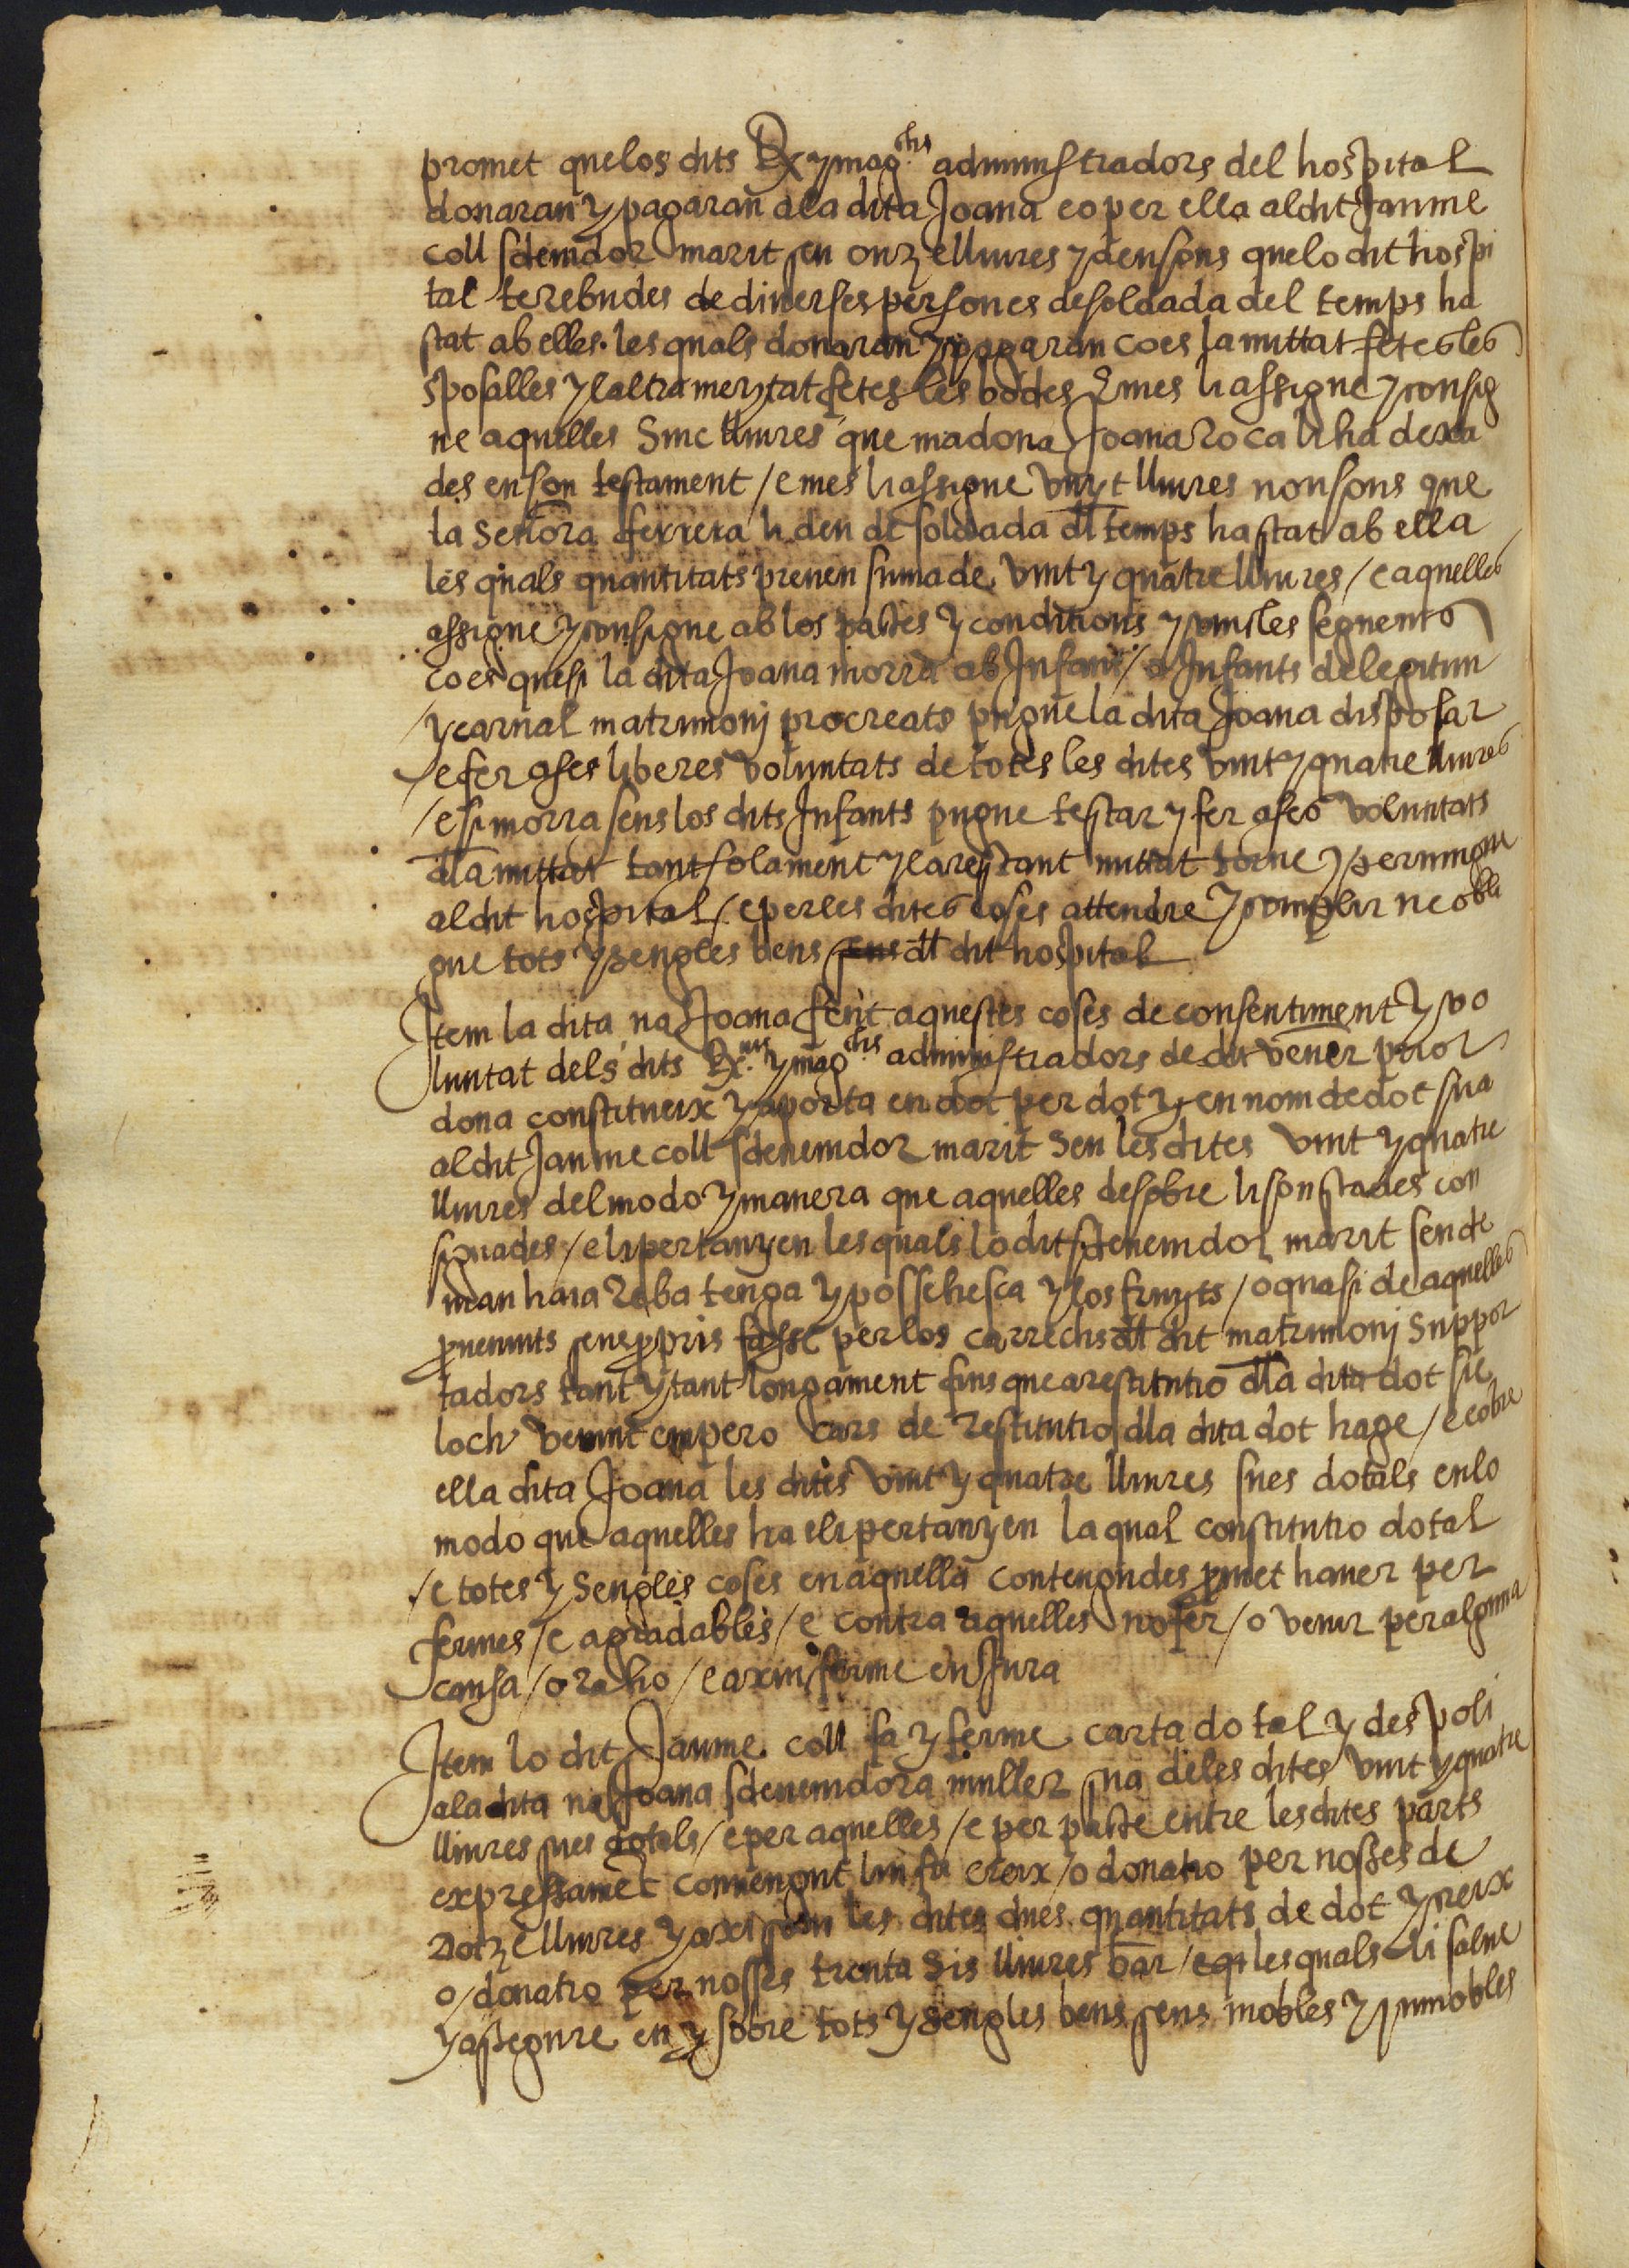 promet que los dits Rx y mag.chs administradors del hospital
donaran y pagaran a la dita Joana eo per ella al dit Jaume
coll sdeuenidor marit seu onze lliures y deu sons que lo dit hospi
tal te rebudes de diuerses persones de soldada del temps ha
stat ab elles. les quals donaran y pagaran co es la mittat fetes les
sposalles y laltra meytat fetes les bodes E mes li assigne y consig
ne aquelles Sinc lliures que madona Joana Roca li ha dexa
des en son testament / e mes li assigne vuyt lliures nou sons que
la Señora ferrera li deu de soldada dl temps ha stat ab ella
les quals quantitats prenen suma de vint y quatre lliures / e aquelles
assigne y consigne ab los pactes y conditions y vincles seguents
co es que si la dita Joana morra ab Infant / o Infants de legitim
y carnal matrimonj procreats pugue la dita Joana disposar
e fer a ses liberes voluntats de totes les dites vint y quatre lliures
/ e si morra sens los dits Infants pugue testar y fer a ses voluntats
dla mittat tant solament y la restant mittat torne y peruingue
al dit hospital / e per les dites coses attendre y complir ne obli
gue tots y sengles bens seus dl dit hospital
Item la dita na Joana fent aquestes coses de consentiment y vo
luntat dels dits Rx.nts y mag.chs administradors de dit vener prior
dona constitueix y aporta en dot per dot y en nom de dot sua
al dit Jaume coll sdeuenidor marit Seu les dites vint y quatre
lliures del modo y manera que aquelles desobre li son stades con
signades / e li pertanyen les quals lo dit sdeuenidor marit seu de
man haia Reba tenga y possehesca y los fruyts / o quasi de aquelles
prouenints seus propris fasse per los carrechs dl dit matrimonj Suppor
tadors tant y tant longament fins que a restitutio dla dita dot sie
loch venint empero cars de restitutio dla dita dot hage / e cobre
ella dita Joana les dites vint y quatre lliures sues dotals en lo
modo que aquelles ha e li pertanyen la qual constitutio dotal
/ e totes y Sengles coses en aquella contengudes promet hauer per
fermes / e agradables / e contra aquelles no fer / o venir per alguna
causa / o raho / e axin ferme en Jura
Item lo dit Jaume coll fa y ferme carta dotal y despoli
a la dita na Joana sdeuenidora muller sua de les dites vint y quatre
lliures sues dotals / e per aquelles / e per pacte entre les dites parts
expressamet conuengut lin fa creix / o donatio per nosses de
Dotze lliures y axi son les dites dues quantitats de dot y creix
o / donatio per nosses trenta Sis lliures bar / eqs les quals li salue
y assegure en y sobre tots y sengles bens seus mobles y inmobles